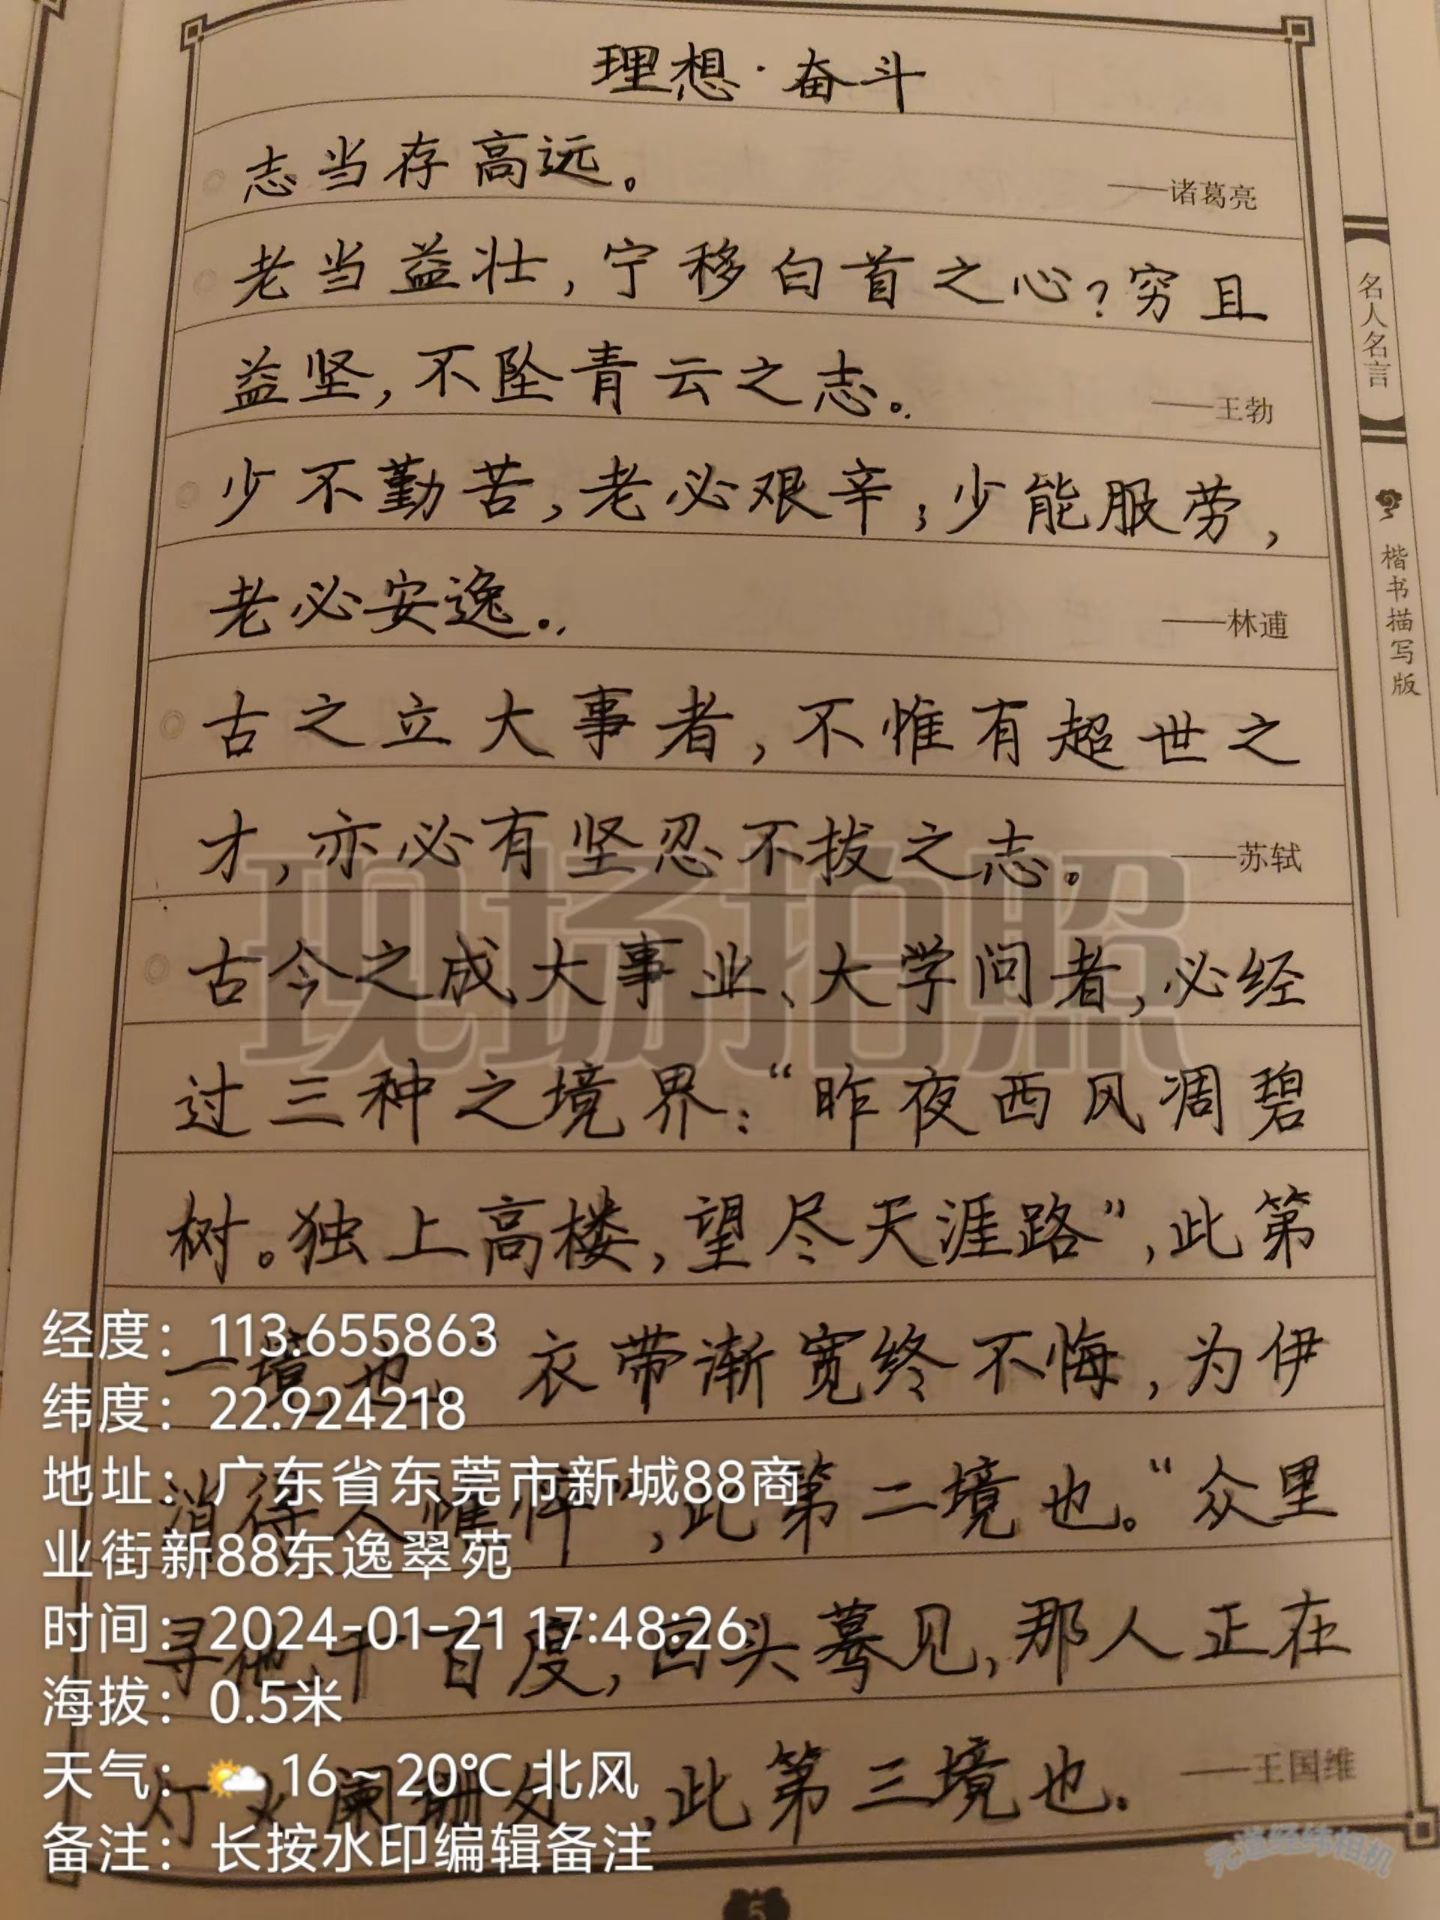 理想·奋斗
志当存高远。
——诸葛亮
老当益壮，宁移白首之心？穷且
益坚，不坠青云之志。
——王勃
少不勤苦，老必艰辛；少能服劳，
老必安逸。
——林逋
古之立大事者，不惟有超世之
才，亦必有坚忍不拔之志。
——苏轼
古今之成大事业、大学问者，必经
过三种之境界：“昨夜西风凋碧
树。独上高楼，望尽天涯路”，此第
一境也。“衣带渐宽终不悔，为伊
消得人憔悴”，此第二境也。“众里
寻他千百度，回头蓦见，那人正在
灯火阑珊处”，此第三境也。
——王国维
名人名言
楷书描写版
5
现场拍照
经度：113.655863
纬度：22.924218
地址：广东省东莞市新城88商
业街新88东逸翠苑
时间：2024-01-21 17:48:26
海拔：0.5米
天气：16～20℃ 北风
备注：长按水印编辑备注
元道经纬相机